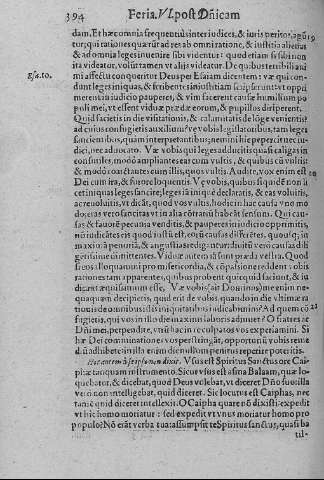 394 Feria. VI. post Dñicam
dam. Et hæc omnia frequentiùs inter iudices, & iuris peritos, agũ
tur; qui rationes quærũt ad res ab omni ratione, & iustitia alienas
& ad omnia leges inuenire sibi videntur: quod etiam si sibi non
ita videatur, voluntatem vt alijs videatur. De quibus terribili ani
Esa. 10. mi affectu conqueritur Deus per Esaiam dicentem: væ qui con-
dunt leges iniquas, & scribentes iniustitiam scripserunt: vt oppri
merent in iudicio pauperes, & vim facerent causæ humilium po
puli mei, vt essent viduæ prædæ eorum, & pupillos diriperent.
Quid facietis in die visitationis, & calamitatis de lõge venientis?
ad cuius confugietis auxilium? ve vobis legislatoribus, tam leges
sancientibus, quàm interpretantibus; nemini his peperci: nec iu-
dici, nec aduocato. Væ vobis qui leges adducitis quasi caligas in
consutiles, modò ampliantes eas cum vultis, & quibus cũ vultis:
& modò constantes cum illis, quos vultis. Audite, vox enim est
Dei cum ira, & furore loquentis. Væ vobis, quibus si quidẽ non li
cet iniquas leges sancire, leges tñ iniquè declaratis, & eas voluitis,
ac reuoluitis, vt dicãt, quod vos vultis, hodie in hac causa vno mo
do; cras vero sanctitas vt in alia cõtrariũ habeãt sensum. Qui cau-
sas & fauore pecunia venditis, & pauperes in iudicio opprimitis,
nõ iudicãtes eis quod iustũ est, eorũ causas differtes, quousq; in
maximã penuriã, & angustias redigãtur: diuitũ verò causas dili
gentissime dimittentes. Viduæ autem ia sunt præda vestra. Quod
si eos alloquamini pro misericordia, & cõpassione reddent: obiu
rationes tam apparentes, quibus probent quicquid faciunt, & iu
dicant æquissimum esse. Væ vobis (ait Dominus) me enim ne-
quaquam decipietis, quid erit de vobis, quando in die vltimæ ra
tionis de omnibus istis iniquitatibus iudicabimini? Ad quem cõ
fugietis, qui vos in illo die in maximis laboris adiuuet? O fratres at
Dñi mei, perpendite, vtrũ hac in re culpatos vos experiamini. Si
hæ Dei comminationes vos perstringãt, opportunũ vobis reme
diũ adhibete: in illa enim die nullum penitus reperire poteritis.
Hoc autem à semetipso non dixit. Vsus est Spiritus Sanctus ore Cai-
phæ tanquam instrumento. Sicut vsus est asina Balaam, quæ lo-
quebatur, & dicebat, quod Deus volebat, vt diceret Dño suo: illa
verò non intelligebat, quid diceret. Sic locutus est Caiphas, nec
tamẽ quid diceret intellexit. O Caipha quare nõ dixisti: expedit
vt hic homo moriatur: sed expedit vt vnus moriatur homo pro
populo? Nõ erãt verba tua: assumpsit te Spiritus sanctus, quasi ba
til-